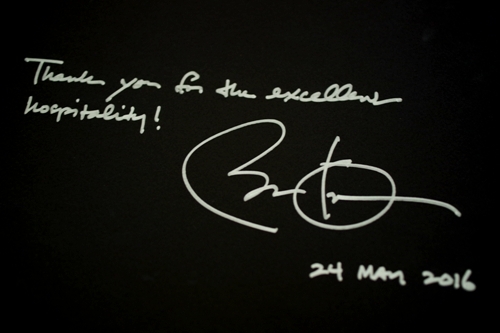 Thank you for the excellent
hospitality!
24 MAY 2016